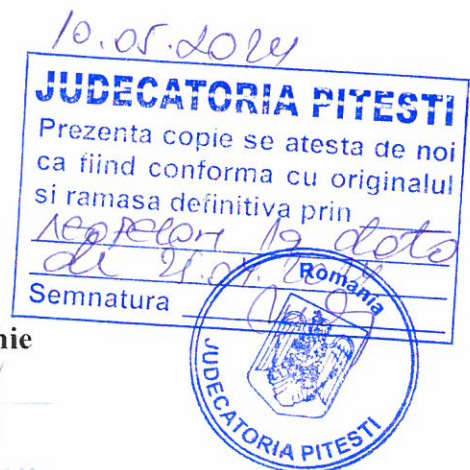 10.05.2024
JUDECATORIA PITESTI
Prezenta copie se atesta de noi
ca fiind conforma cu originalul
si ramasa definitiva prin
neapelare la data
de
Semnatura
nie
Romania
JUDECATORIA PITESTI